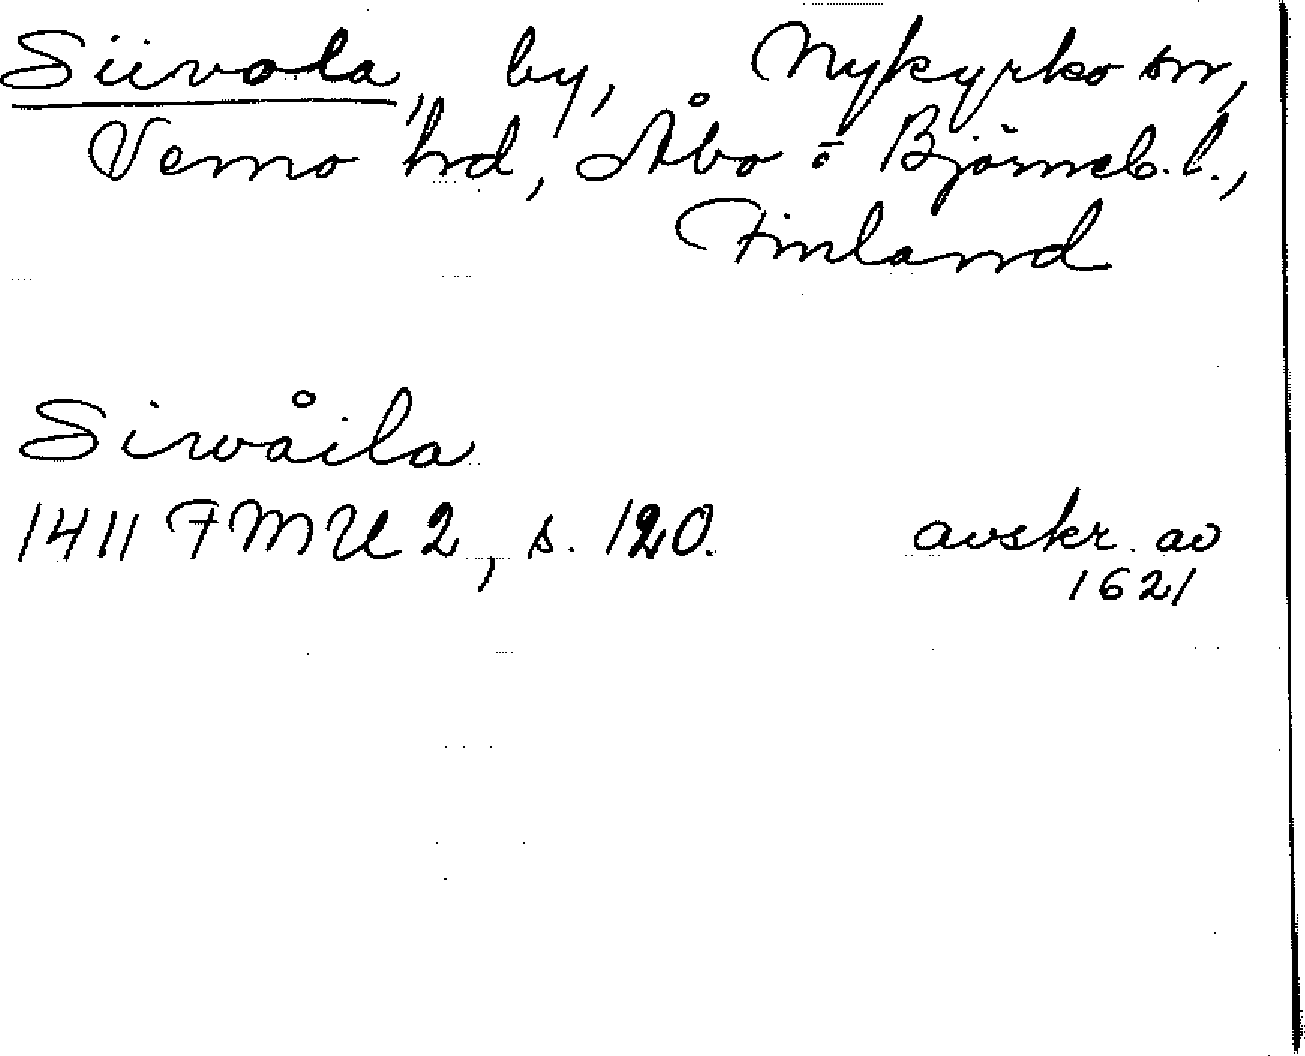 Siivola, by, Nykyrko sn,
Vemo hd, Åbo o Björneb. l.,
Finland
Sirwåila
1411 FMU 2, s. 120. avskr. av
1621